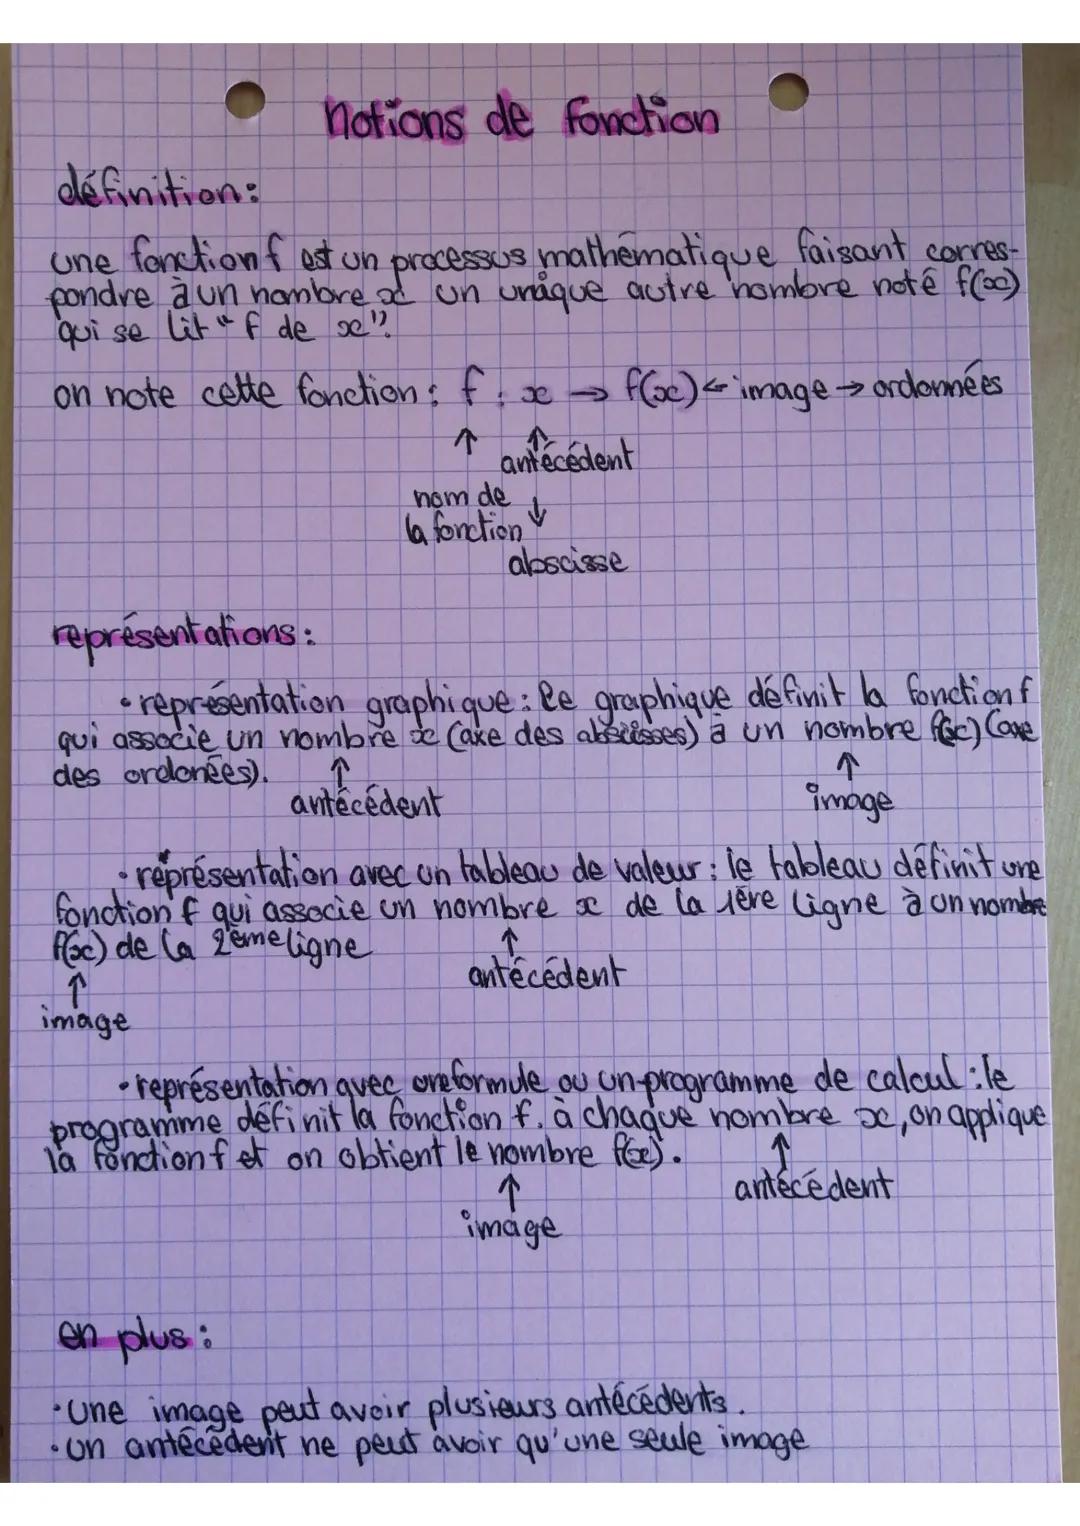 notions de fonction
définition:
une fonction f est un processus mathématique faisant corres-
pondre à un nombre x un unique autre nombre noté f(x)
qui se lit "f de x".
on note cette fonction : f : x → f(x) ← image → ordonnées
↑ ↑
antécédent
nom de ↓
la fonction
abscisse
représentations :
• représentation graphique : le graphique définit la fonction f
qui associe un nombre x (axe des abscisses) à un nombre f(x) (axe
des ordonées). ↑ ↑
antécédent image
• réprésentation avec un tableau de valeur : le tableau définit une
fonction f qui associe un nombre x de la 1ère ligne à un nombre
f(x) de la 2ème ligne ↑
↑ antécédent
image
• représentation avec une formule ou un programme de calcul : le
programme définit la fonction f. à chaque nombre x, on applique
la fonction f et on obtient le nombre f(x). ↑
↑ antécédent
image
en plus :
• une image peut avoir plusieurs antécédents.
• un antécédent ne peut avoir qu'une seule image